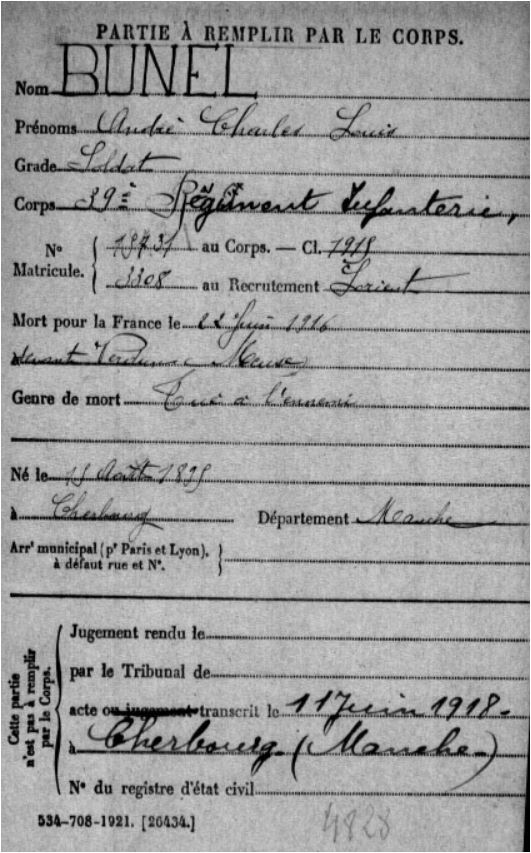 PARTIE À REMPLIR PAR LE CORPS.
Nom BUNEL
Prénoms André Charles Louis
Grade Soldat
Corps 39e Régiment Infanterie,
No Matricule. { 13731 au Corps. — Cl. 1915
3308 au Recrutement Lorient
Mort pour la France le 22 Juin 1916
devant Verdun Meuse
Genre de mort Tué à l'ennemi
Né le 15 Août 1895
à Cherbourg Département Manche
Arrt municipal (pr Paris et Lyon), à défaut rue et No. }
Cette partie n'est pas à remplir par le Corps.
Jugement rendu le
par le Tribunal de
acte ou jugement transcrit le 11 Juin 1918-
à Cherbourg (Manche)
No du registre d'état civil
534-708-1921. [26434.]
4828